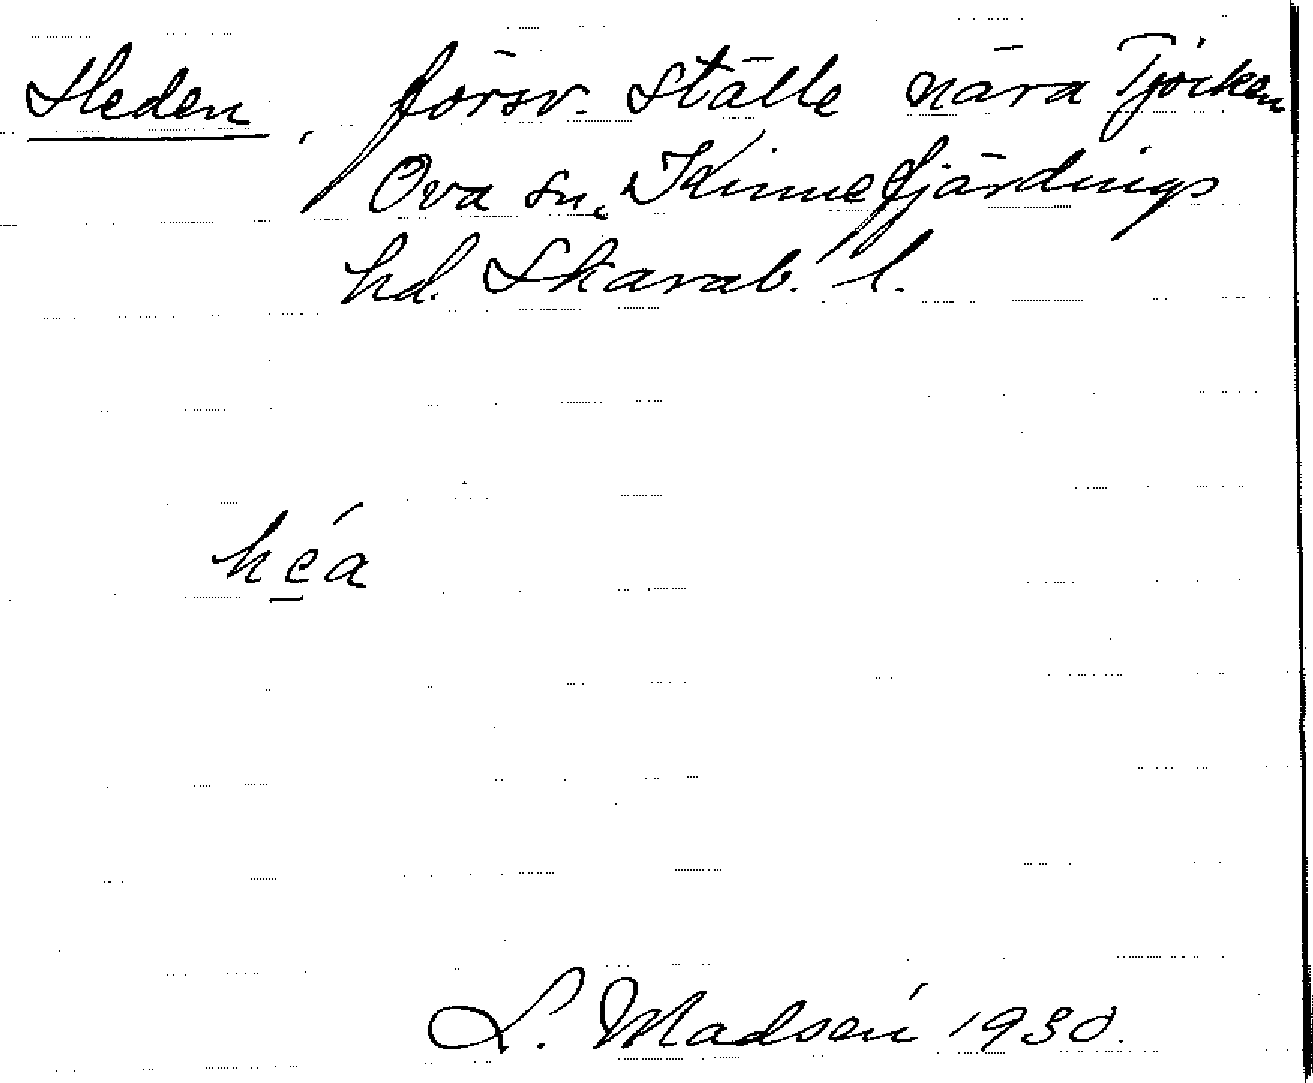 Heden, försv. Ställe nära Tjorken
Ova sn, Kinnefjärdings
hd. Skarab. l.
héa
L. Madsén 1930.